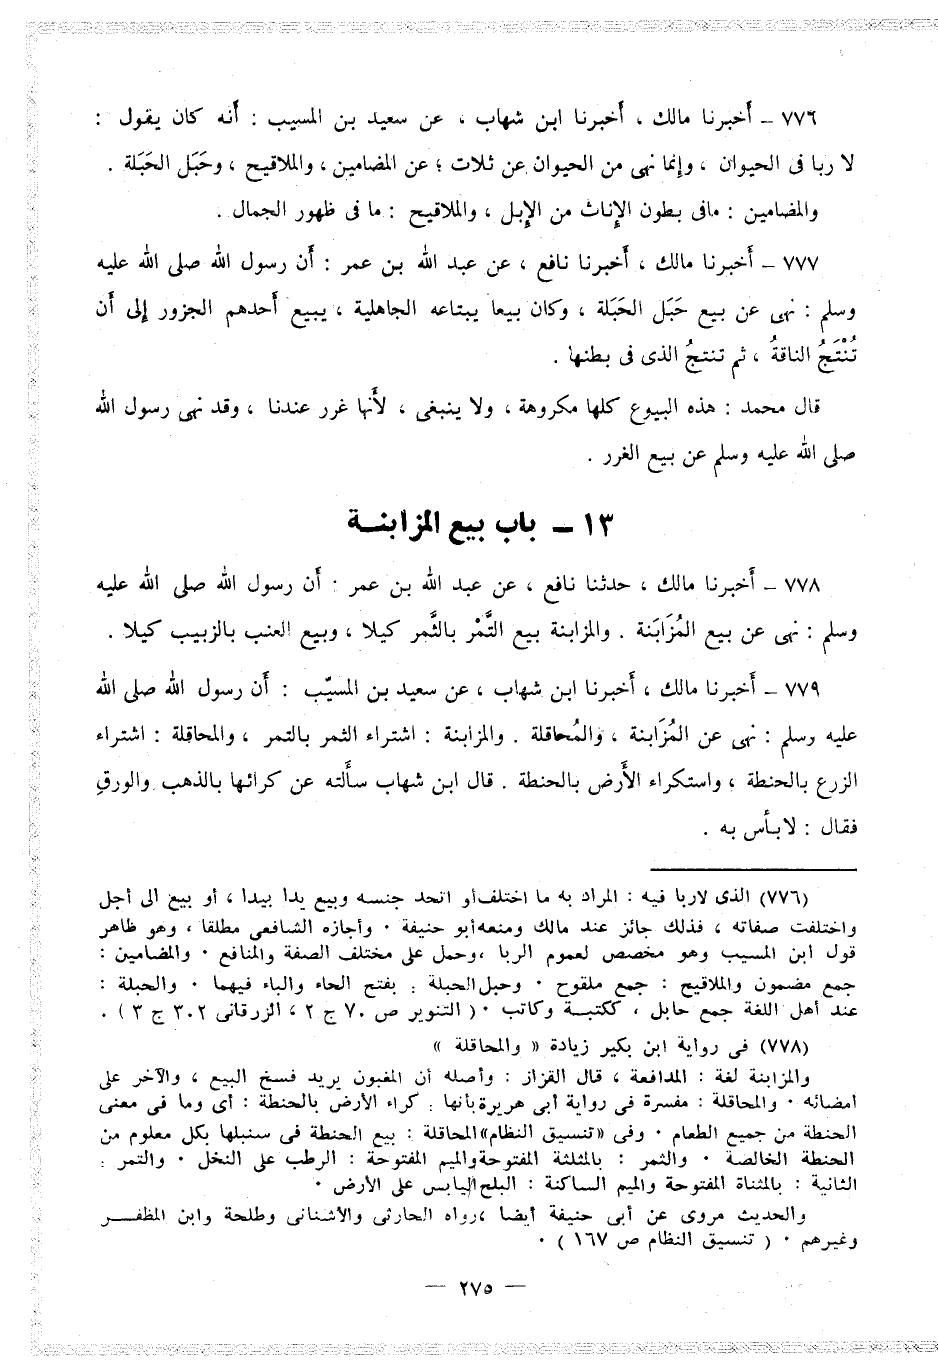 ٧٧٦ – أخبرنا مالك ، أخبرنا ابن شهاب ، عن سعيد بن المسيب : أنه كان يقول :
لا ربا فى الحيوان ، وإنما نهى من الحيوان عن ثلاث ؛ عن المضامين ، والملاقيح ، وحَبَل الحَبَلة .
والمضامين : مافى بطون الإناث من الإبل ، والملاقيح : ما فى ظهور الجمال .
٧٧٧ – أخبرنا مالك ، أخبرنا نافع ، عن عبد الله بن عمر : أن رسول الله صلى الله عليه
وسلم : نهى عن بيع حَبَل الحَبَلة ، وكان بيعا يبتاعه الجاهلية ، يبيع أحدهم الجزور إلى أن
تُنْتَجُ الناقةُ ، ثم تنتجُ الذى فى بطنها .
قال محمد : هذه البيوع كلها مكروهة ، ولا ينبغى ، لأنها غرر عندنا ، وقد نهى رسول الله
صلى الله عليه وسلم عن بيع الغرر .
١٣ – باب بيع المزابنــة
٧٧٨ – أخبرنا مالك ، حدثنا نافع ، عن عبد الله بن عمر : أن رسول الله صلى الله عليه
وسلم : نهى عن بيع المُزَابَنة . والمزابنة بيع التَّمْر بالثَّمر كيلا ، وبيع العنب بالزبيب كيلا .
٧٧٩ – أخبرنا مالك ، أخبرنا ابن شهاب ، عن سعيد بن المسيّب : أن رسول الله صلى الله
عليه رسلم : نهى عن المُزَابنة ، والمُحاقلة . والمزابنة : اشتراء الثمر بالتمر ، والمحاقلة : اشتراء
الزرع بالحنطة ، واستكراء الأرض بالحنطة . قال ابن شهاب سألته عن كرائها بالذهب والورقِ
فقال : لابأس به .
(٧٧٦) الذى لاربا فيه : المراد به ما اختلف أو اتحد جنسه وبيع يدا بيدا ، أو بيع الى أجل
واختلفت صفاته ، فذلك جائز عند مالك ومنعه أبو حنيفة ٠ وأجازه الشافعى مطلقا ، وهو ظاهر
قول ابن المسيب وهو مخصص لعموم الربا ، وحمل على مختلف الصفة والمنافع ٠ والمضامين :
جمع مضمون والملاقيح : جمع ملقوح ٠ وحبل الحبلة : بفتح الحاء والباء فيهما ٠ والحبلة :
عند أهل اللغة جمع حابل ، ككتبــة وكاتب ٠ ( التنوير ص ٧٠ ج ٢ ، الزرقانى ٣٠٢ ج ٣ ) .
(٧٧٨) فى رواية ابن بكير زيادة « والمحاقلة »
والمزابنة لغة : المدافعة ، قال القزاز : وأصله أن المغبون يريد فسخ البيع ، والآخر على
امضائه ٠ والمحاقلة : مفسرة فى رواية أبى هريرة بأنها : كراء الأرض بالحنطة : أى وما فى معنى
الحنطة من جميع الطعام ٠ وفى «تنسيق النظام» المحاقلة : بيع الحنطة فى سنبلها بكل معلوم من
الحنطة الخالصة ٠ والثمر : بالمثلثة المفتوحة والميم المفتوحة : الرطب على النخل ٠ والتمر :
الثانية : بالمثناة المفتوحة والميم الساكنة : البلح اليابس على الأرض ٠
والحديث مروى عن أبى حنيفة أيضا ، رواه الحارثى والأشنانى وطلحة وابن المظفــر
وغيرهم ٠ ( تنسيق النظام ص ١٦٧ ) ٠
— ٢٧٥ —